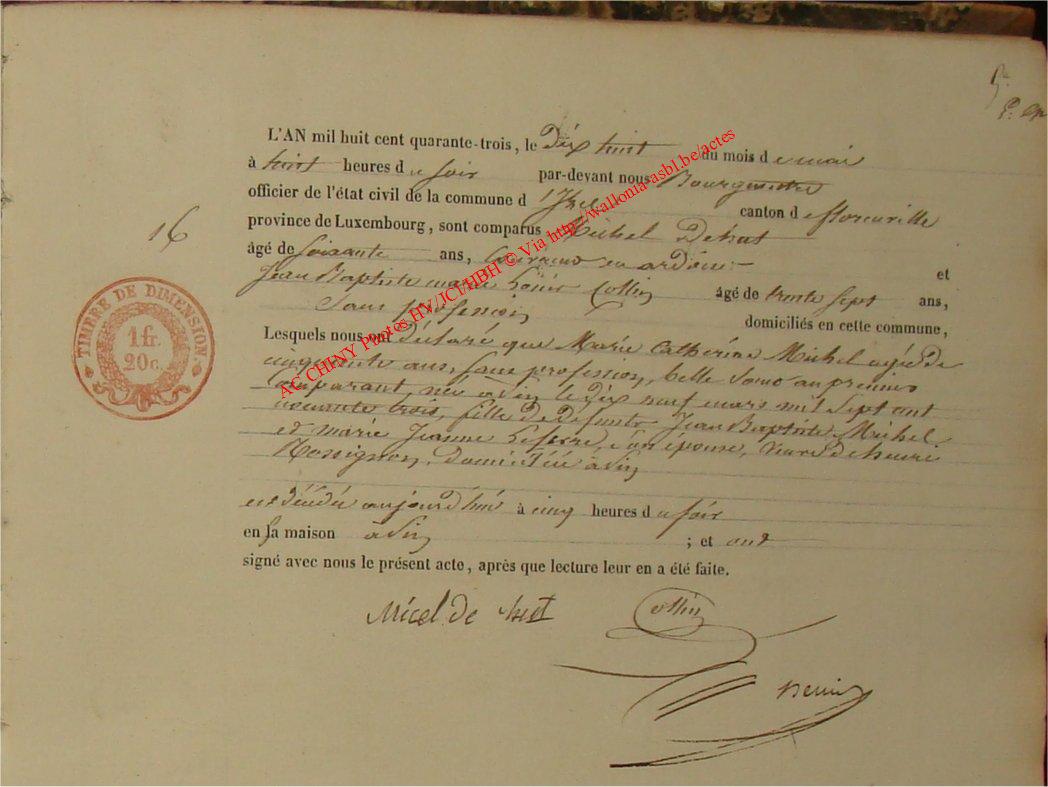 L'AN mil huit cent quarante-trois, le Dix huit du mois de mai
à huit heures du soir par-devant nous Bourgmestre
officier de l'état civil de la commune d'Izel canton de florenville
province de Luxembourg, sont comparus Michel Dehut
âgé de soixante ans, ouvrier en ardoise et
Jean Baptiste marie Louis Collin âgé de trente sept ans,
Sans profession domiciliés en cette commune,
Lesquels nous ont déclaré que Marie Catherine Michel agée de
cinquante ans, sans profession, belle sœur au premier
comparant, née à le dix neuf mars mil sept cent
nonante trois, fille de défunts Jean Baptiste Michel
et marie Jeanne Lefevre, son épouse, veuve de henri
Rossignon, domiciliée à
est décédée aujourd'hui à cinq heures du soir
en sa maison à ; et ont
signé avec nous le présent acte, après que lecture leur en a été faite.
Micel de hut Collin
16
TIMBRE DE DIMENSION
1 fr.
20 c.
AC CHINY Photos HV/JCJ/HBH © Via http://wallonia-asbl.be/actes